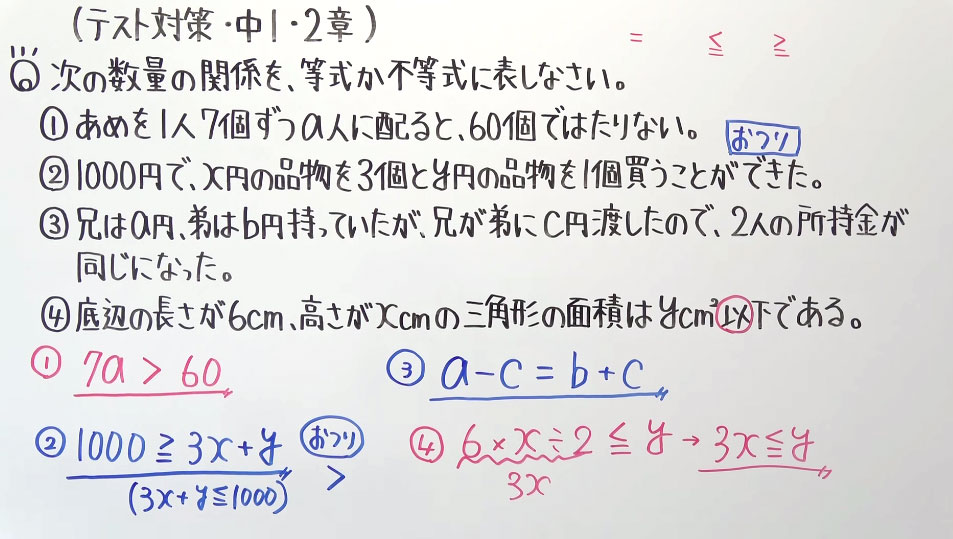 (テスト対策・中1・2章)
= ≦ ≧
Q 次の数量の関係を、等式か不等式に表しなさい。
①あめを1人7個ずつa人に配ると、60個ではたりない。
おつり
②1000円で、x円の品物を3個とy円の品物を1個買うことができた。
③兄はa円、弟はb円持っていたが、兄が弟にc円渡したので、2人の所持金が
同じになった。
④底辺の長さが6cm、高さがxcmの三角形の面積はycm²以下である。
① 7a > 60
③ a-c = b+c
② 1000 ≧ 3x+y おつり
(3x+y≦1000) >
④ 6×x÷2 ≦ y → 3x≦y
3x